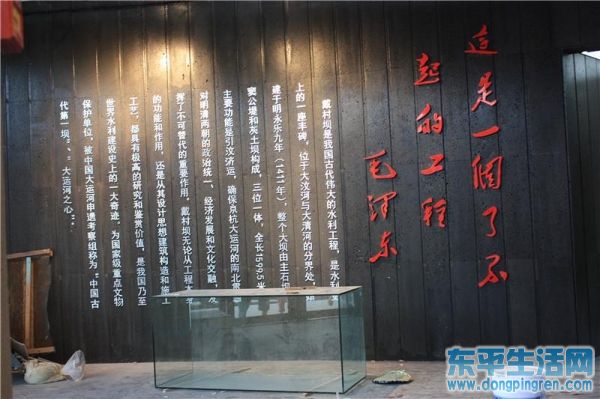 这是一个了不
起的工程
毛泽东
戴村坝是我国古代伟大的水利工程，是水利
上的一座丰碑，位于大汶河与大清河的分界处，
建于明永乐九年（1411年），整个大坝由主石坝
窦公堤和灰土坝构成，三位一体，全长1599.5米
主要功能是引汶济运，确保京杭大运河的南北贯
对明清两朝的政治统一、经济发展和文化交融，发
挥了不可替代的重要作用，戴村坝无论从工程
的功能和作用，还是从其设计思想建筑构造和施工
工艺，都具有极高的研究和鉴赏价值，是我国乃至
世界水利建设史上的一大奇迹，为国家级重点文物
保护单位，被中国大运河申遗考察组称为“中国古
代第一坝”、“大运河之心”。
东平生活网
www.dongpingren.com